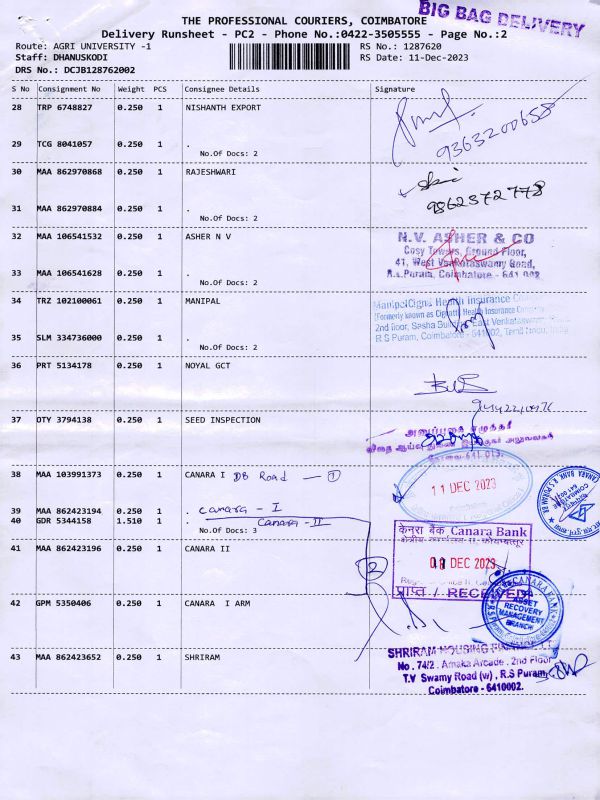 BIG BAG DELIVERY
THE PROFESSIONAL COURIERS, COIMBATORE
Delivery Runsheet - PC2 - Phone No.:0422-3505555 - Page No.:2
Route: AGRI UNIVERSITY -1
RS No.: 1287620
Staff: DHANUSKODI
RS Date: 11-Dec-2023
DRS No.: DCJB128762002
S No Consignment No Weight PCS Consignee Details Signature
28 TRP 6748827 0.250 1 NISHANTH EXPORT
9363200658
29 TCG 8041057 0.250 1 .
No.Of Docs: 2
30 MAA 862970868 0.250 1 RAJESHWARI
9862372778
31 MAA 862970884 0.250 1 .
No.Of Docs: 2
32 MAA 106541532 0.250 1 ASHER N V
N.V. ASHER & CO
Cosy Towers, Ground Floor,
41, West Venkataswamy Road,
R.s.Puram, Coimbatore - 641 002
33 MAA 106541628 0.250 1 .
No.Of Docs: 2
34 TRZ 102100061 0.250 1 MANIPAL
ManipalCigna Health Insurance
(Formerly known as Health Insurance Company
2nd floor, Sasha East Venkataswamy
R S Puram, Coimbatore - 641002, Tamil Nadu, India
35 SLM 334736000 0.250 1 .
No.Of Docs: 2
36 PRT 5134178 0.250 1 NOYAL GCT
37 OTY 3794138 0.250 1 SEED INSPECTION
விதை ஆய்வு
641 013.
38 MAA 103991373 0.250 1 CANARA I DB Road - 1
11 DEC 2023
39 MAA 862423194 0.250 1 . Canara - I
40 GDR 5344158 1.510 1 . Canara - II
No.Of Docs: 3
केनरा बैंक Canara Bank
DEC 2023
प्राप्त / RECEIVED
41 MAA 862423196 0.250 1 CANARA II
42 GPM 5350406 0.250 1 CANARA I ARM
CANARA BANK
ASSET
RECOVERY
MANAGEMENT
BRANCH
43 MAA 862423652 0.250 1 SHRIRAM
SHRIRAM HOUSING
No. 74/2, Amaka Arcade, 2nd Floor
T.V Swamy Road (w), R.S Puram,
Coimbatore - 6410002.